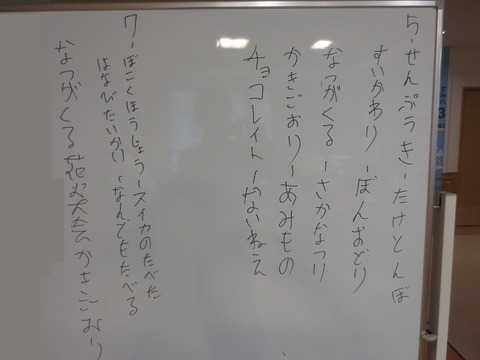 5-せんぷうき-たけとんぼ
すいかわり-ぼんおどり
なつがくる-さかなつり
かきごおり-あみもの
チョコレイト-やないねえ
7-ぼこくほうじょう-スイカのたべた
はなびたいかい-なんでもたべる
なつがくる花火大会かきごおり